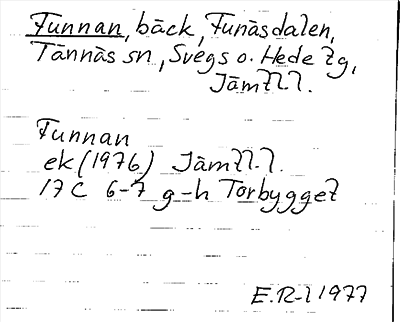 Funnan, bäck, Funäsdalen,
Tännäs sn, Svegs o. Hede tg,
Jämtl.l.
Funnan
ek (1976) Jämtl.l.
17C 6-7 g-h Torbygget
E.R-l 1977